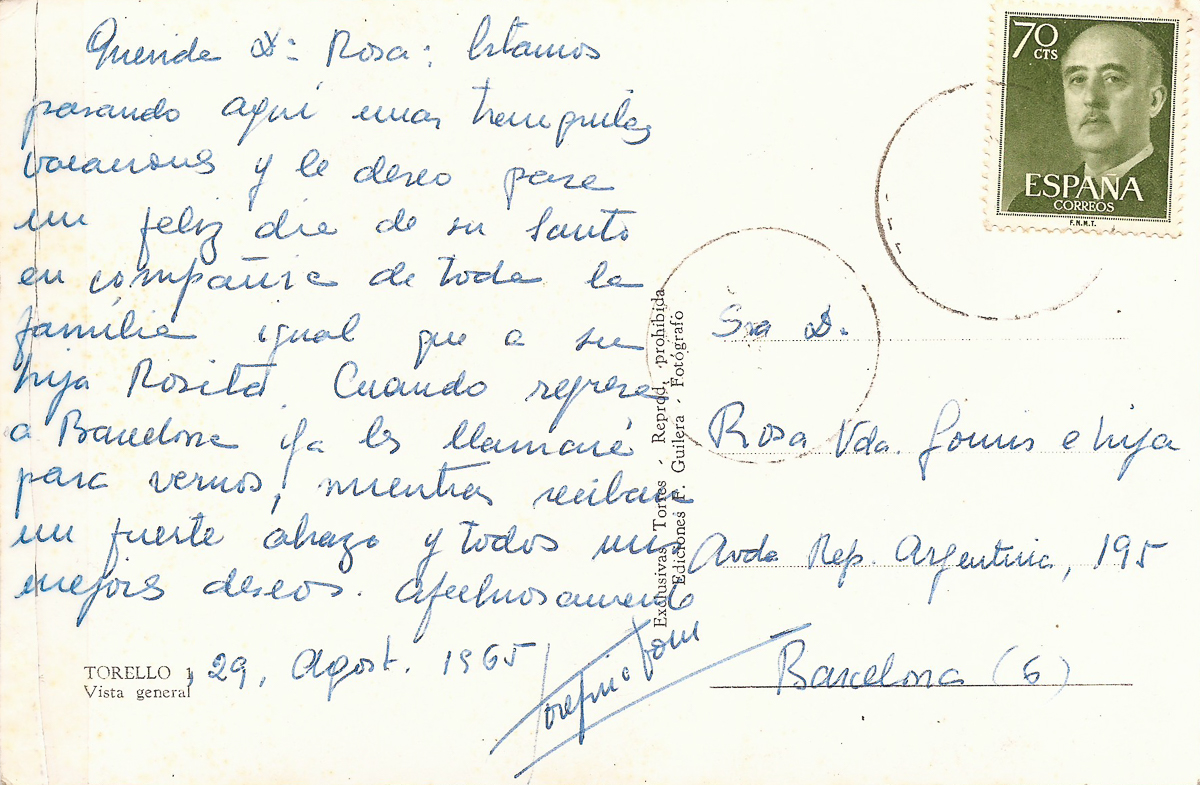 Querida Dª Rosa: Estamos
pasando aquí unas tranquilas
vacaciones y le deseo pase
un feliz día de su Santo
en compañía de toda la
família igual que a su
hija Rosita. Cuando regrese
a Barcelona ya les llamaré
para vernos, mientras reciban
un fuerte abrazo y todos mis
mejores deseos. Afectuosamente
TORELLO 1
Vista general
29, Agost. 1965
Exclusivas Torres - Reprod. prohibida
Ediciones F. Guilera - Fotógrafo
70
CTS
ESPAÑA
CORREOS
F.N.M.T.
Sra D.
Rosa Vda. Gomis e hija
Avda Rep. Argentina, 195
Barcelona (6)